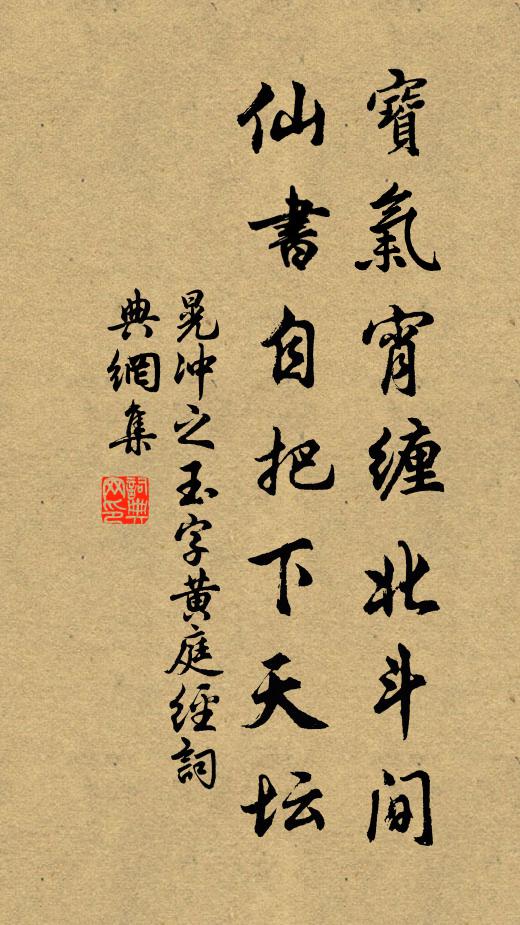 寶氣宵纏北斗間
仙書自把下天坛
晁冲之玉字黄庭經詞
典網集
詞典网印